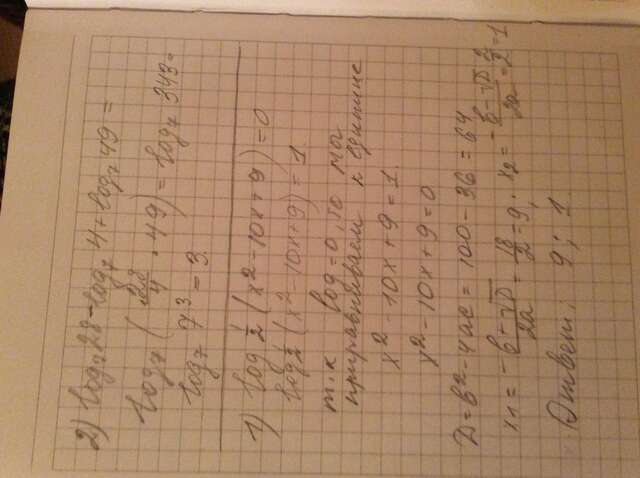 2) log₇28-log₇4+log₇49=
log₇(28/4·49)=log₇ 343=
log₇ 7³=3.
1) log 1/2 (x²-10x+9)=0
log 1/2 (x²-10x+9)=1.
т.к log=0, то мы
приравниваем к единице
x²-10x+9=1.
x²-10x+9=0
Д=b²-4ac=100-36=64
x₁=-b-√D/2a=18/2=9; x₂=-b-√D/2a=2/2=1
Ответ: 9; 1